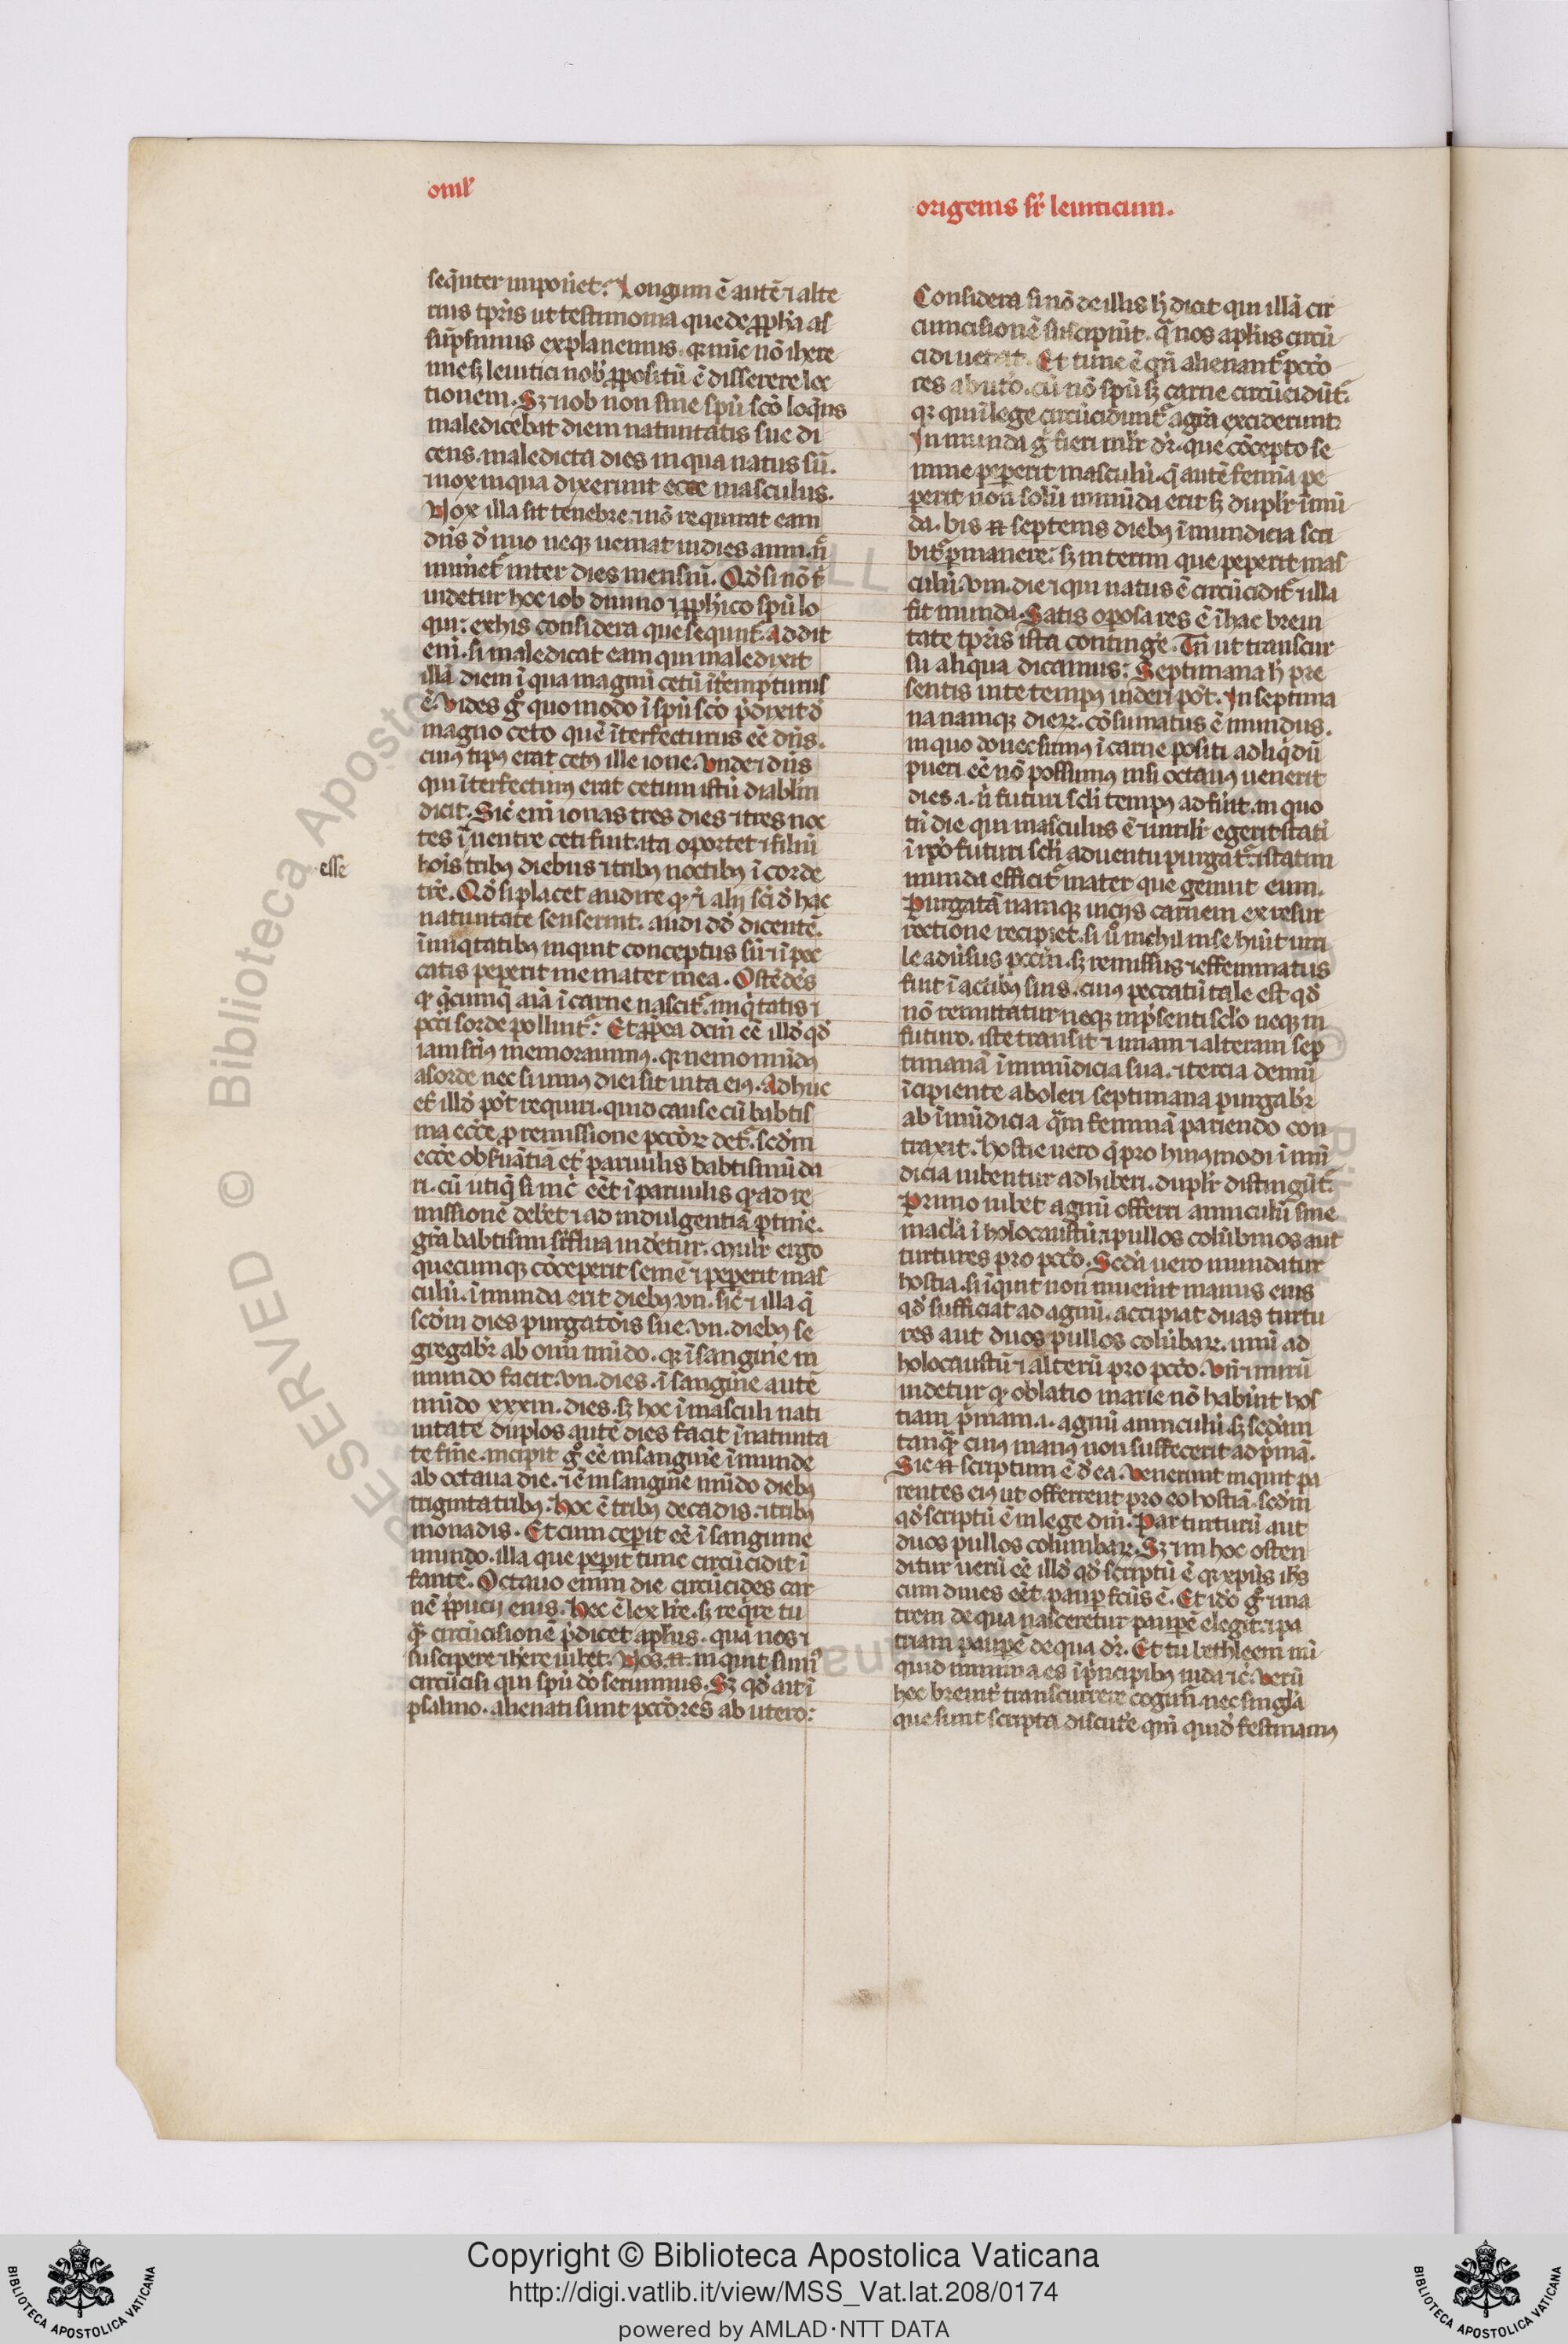 omł
origenis sr̄ leuiticum.
seq̄nter impoñet. Longum ē autē ⁊ alte
rius tp̄ris ut testimonia que de ꝓph̄a as
sūpsimus explanemus. qꝫ nūc nō ihere
mie sꝫ leuitici nob̄ ꝓpositū ē disserere lec
tionem. Sꝫ iob non sine sp̄u sc̄o loq̄ns
maledicebat diem natiuitatis sue di
cens. maledicta dies in qua natus sū.
⁊ nox in qua dixerunt ecce masculus.
Nox illa sit tenebre. ⁊ nō requirat eam
dn̄s
neqꝫ ueniat in dies anni. n̄
inter dies mensiū. Qd̄ si nō
uidetur hoc iob diuino ⁊ ꝓph̄ico sp̄u lo
qui: ex his considera que sequnt̄. Addit
eni. si maledicat eam qui maledixit
illā diem ī qua magnū cetū īterempturus
ē. Vides gͦ quo modo ī sp̄u sc̄o p̄dixit d̄
magno ceto quē īterfecturus eē dn̄s.
cuiꝰ tipꝰ erat cetꝰ ille ione. Vnde ⁊ dn̄s
qui īterfecturꝰ erat cetum istū diablm̄
dicit. Sic̄ eni ionas tres dies ⁊ tres noc
tes ī uentre ceti fuit. ita oportet ⁊ filiū
hois tribꝰ diebus ⁊ tribꝰ noctibꝰ ī corde
esse
tr̄e. Qd̄ si placet audire qꝫ ⁊ alij sc̄i d̄ hac
natiuitate senserint. audi dd̄ dicentē.
ī iniq̄tatibꝰ inquit conceptus sū ⁊ ī pec
catis peperit me mater mea. Ostēdēs
qꝫ q̄cumqꝫ aīa ī carne nascit̄. iniq̄tatis ⁊
pcc̄i sorde polluit̄. Et ꝓpea dcm̄ eē illd̄ qd̄
iam suꝑiꝰ memorauimꝰ. qꝫ nemo mūdꝰ
a sorde nec si unꝰ diei sit uita eiꝰ. Adhuc
et̄ illd̄ pōt requiri. quid cause cū babtis
ma ecc̄e ꝓ remissione pcc̄oꝝ det̄. scd̄m
ecc̄e obs̄uātiā et̄ paruulis babtismū da
ri. cū utiq̄ si nic̄ eēt ī paruulis qꝫ ad re
missionē debet ⁊ ad indulgentiā ꝑtinē.
gr̄a babtismi sr̄flua uidetur. Mulr̄ ergo
quecumqꝫ cōceperit semē ⁊ peperit mas
culū. īmunda erit diebꝰ .vii. sic̄ ⁊ illa q̄
scd̄m dies purgatōis sue .vii. diebꝰ se
gregabr̄ ab om̄i mūdo. qꝫ ī sangine in
mundo facit .vii. dies. ī sangine autē
mūdo xxxiii. dies. sꝫ hoc ī masculi nati
uitate duplos autē dies facit ī natiuita
te fīe. incipit gͦ eē in sangine īmunde
ab octaua die. ⁊ ē in sangine mūdo diebꝰ
triginta tribꝰ. Hoc ē tribꝰ decadis. ⁊ tribꝰ
monadis. Et cum ceperit eē ī sanguine
mundo. illa que peperit tunc circūcidit ī
fantē. Octauo enim die circūcides car
nē ꝓpucij eius. Hec ē lex
sꝫ req̄re tu
qꝫ circūcisionē p̄dicet aplūs. quā nos ⁊
suscipere ⁊ h̄ere iubet. Nos .n. inquit sumꝰ
circūcisi qui sp̄u dō seruimus. Sꝫ qd̄ ait ī
psalmo. alienati sunt pcc̄ores ab utero:
Considera si nō de illis h̄ dicit qui illā cir
cumcisionē suscipiūt. q̄ nos aplūs circū
cidi uetat. Et tunc ē qn̄ alienant̄ pcc̄o
res ab utō. cū nō sp̄u sꝫ carne circūcidūt̄.
qꝫ qui ī lege circūcidunt̄ a gr̄a exciderunt.
In munda gͦ fieri mlr̄ dr̄. que cōcepto se
mine pepert masculū. q̄ autē femīa pe
perit non solū inmūda erit sꝫ duplr̄ īmū
da. bis .n. septenis diebꝰ īmundicia scri
bit̄ ꝑmanere. sꝫ interim que peperit mas
culū .viii. die ⁊ qui natus ē circūcidit̄ ⁊ illa
fit munda. Satis oposa res ē ī hac breui
tate tp̄ris ista continge. Tn̄ ut transcur
su aliqua dicamus: Septimana h̄ pre
sentis uite tempꝰ uideri pōt. In septima
na namqꝫ dieꝝ. cōsumatus ē mundus.
in quo donec sumꝰ ī carne positi ad liq̄dū
puri eē nō possumꝰ nisi octauꝰ uenerit
dies .i. n̄ futuri scl̄i tempꝰ adfūit. in quo
tn̄ die qui masculus ē ⁊ uirilr̄ egerit stati
ī ip̄o futuri scl̄i aduentu purgat̄. ⁊ statim
munda efficit̄ mater que genuit eum.
Purgatā namqꝫ uicijs carnem ex resur
rectione recipiet. si ū nichil in se hūit uiri
le aduīsus pcc̄m. sꝫ remissus ⁊ effeminatus
fuit ī actibꝰ suis. cuiꝰ peccatū tale est qd̄
nō remittatur neqꝫ in p̄senti sclo neqꝫ in
futuro. iste transit ⁊ unam ⁊ alteram sep
timanā ī inmūdicia sua. ⁊ tercia demū
īcipiente aboleri septimana purgabr̄
ab īmūdicia q̄m feminā pariendo con
traxit. Hostie uero q̄ pro huiꝰmodi īmū
dicia iubentur adhiberi. duplr̄ distingūt̄.
Primo iubet agnū offerri anniculū sine
macla ī holocaustū. ⁊ pullos colūbinos aut
turtures pro pcc̄o. Scd̄a uero mundatur
hostia. si īquit non inuen̄it manus eius
qd̄ sufficiat ad agnū. accipiat duas turtu
res aut duos pullos colūbaꝝ. unū ad
holocaustū ⁊ alterū pro pcc̄o. Vn̄ ⁊ mirū
uidetur qꝫ oblatio marie nō habūit hos
tiam p̄mam .i. agnū anniculū. sꝫ scd̄am
tanq̄ cuiꝰ manꝰ non suffecerit ad p̄mā.
Sic .n. scriptum ē d̄ ea. Venerunt inquit pa
rentes eiꝰ ut offerrent pro eo hostiā. scd̄m
qd̄ scriptū ē in lege dn̄i. Par turturū aut
duos pullos columbaꝝ. Sꝫ ⁊ in hoc osten
ditur uerū eē illd̄ qd̄ scriptū ē qꝫ xp̄us ih̄s
cum diues eēt. pauꝑ fcūs ē. Et idō gͦ ⁊ ma
trem de qua nasceretur pauꝑē elegit. ⁊ pa
triam pauꝑē de qua dr̄. Et tu bethleem nū
quid minima es ī p̄ncipibꝰ iuda ⁊c̄. Verū
hec breuit̄ transcurrere cogim̄. nec singla
que sunt scripta discutē qm̄ quid̄ festinamꝰ
Copyright © Biblioteca Apostolica Vaticana
http://digi.vatlib.it/view/MSS_Vat.lat.208/0174
powered by AMLAD·NTT DATA
BIBLIOTECA APOSTOLICA VATICANA
BIBLIOTECA APOSTOLICA VATICANA